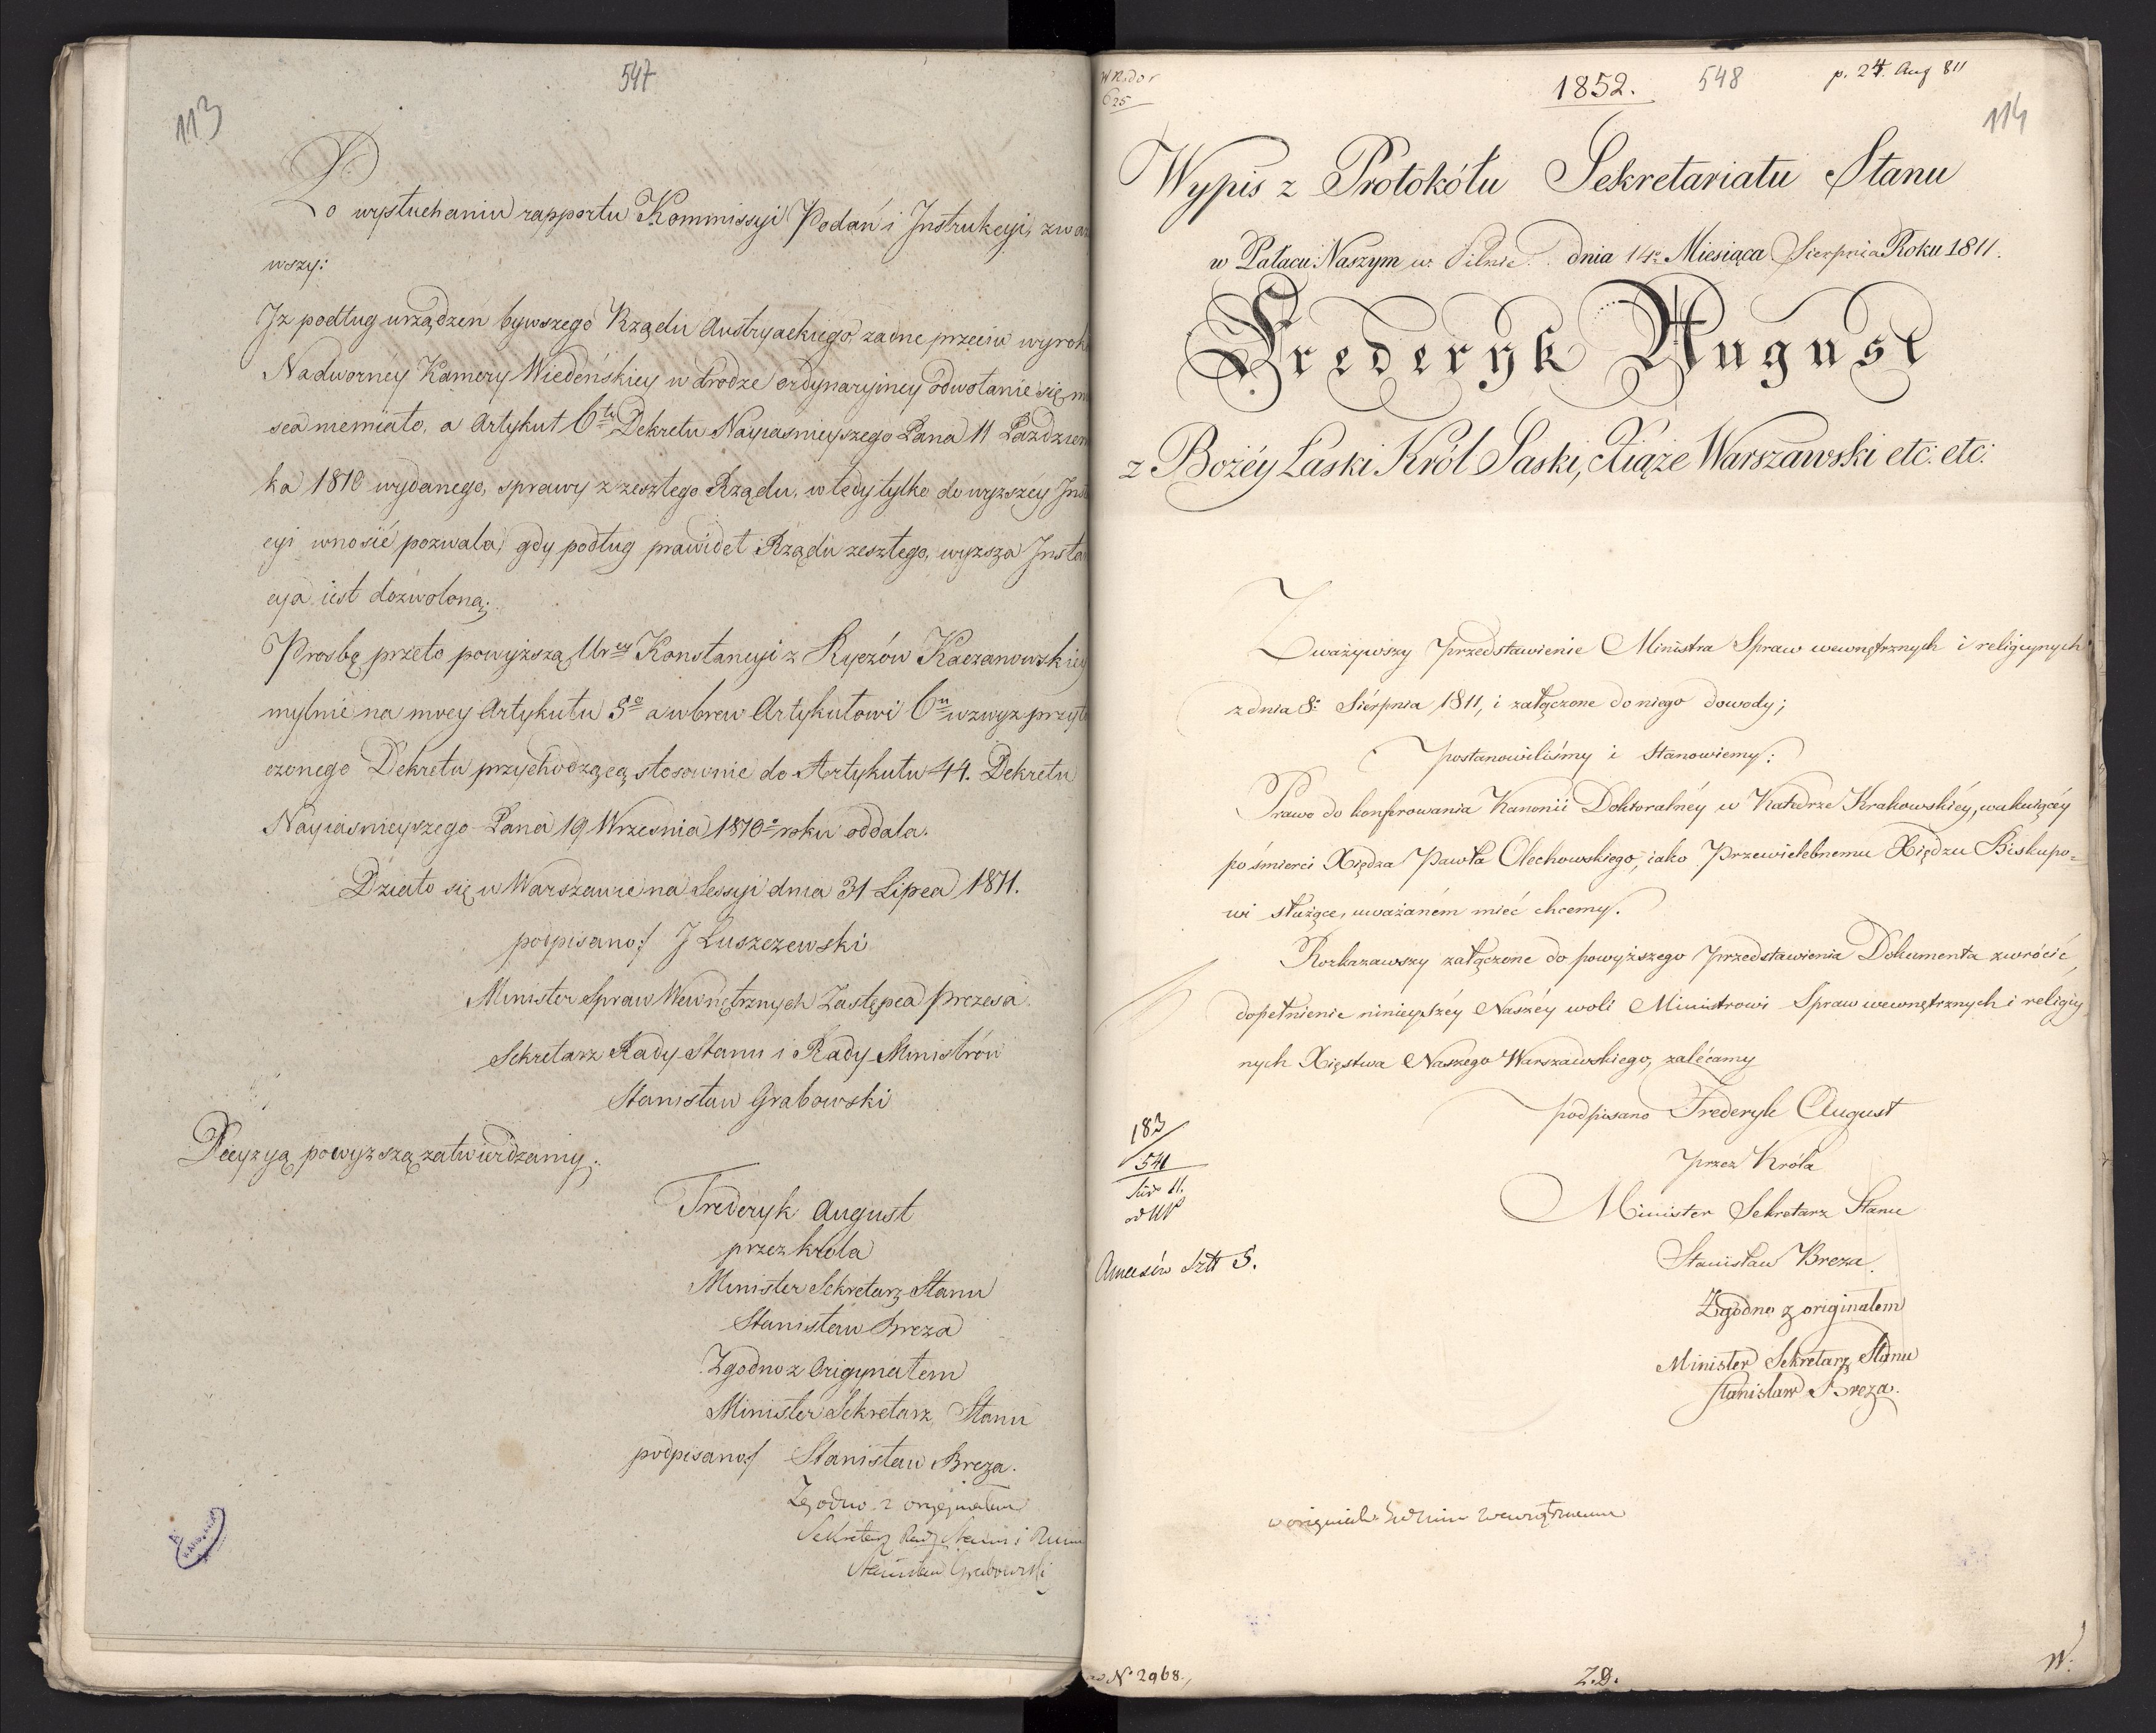 547
113
Po wysłuchaniu rapportu Kommissyi Podań i Instrukcyi, zwa
wszy:
Iz podług urządzeń bywszego Rządu Austryackiego, żadne przeciw wyrok
Nadwornéy Kamery Wiedeńskiey w drodze ordynaryiney odwołanie się, m
sca niemiało, a Artykuł 6ty Dekretu Nayiasnieyszego Pana 11 Pazdzier
ka 1810 wydanego, sprawy z zeszłego Rządu, w tedy tylko do wyższéy Ins
cyi wnosić pozwala, gdy podług prawideł Rządu zeszłego, wyzsza Insta
cya iest dozwoloną;
Prosbę przeto powyższą, Ur.ey Konstancyi z Ryczów Kaczanowskiey
mylnie na mocy Artykułu 5o a wbrew Artykułowi 6u wzwyz przyto
czonego Dekretu przychodzącą, stosownie do Artykułu 44. Dekretu
Nayiasnieyszego Pana 19 Wrzesnia 1810o roku oddala.
Działo się w Warszawie na Sessyi dnia 31 Lipca 1811.
podpisano:/ J Łuszczewski
Minister Spraw Wewnętrznych Zastępca Prezesa.
Sekretarz Rady Stanu i Rady Ministrów
Stanisław Grabowski
Decyzyą powyzszą zatwierdzamy:
Frederyk August
przez Króla
Minister Sekretarz Stanu
Stanisław Breza
Zgodno z Origynałem
Minister Sekretarz Stanu
podpisano:/ Stanisław Breza.
Zgodno z oryginałem
Sekretarz Rady Stanu i Rmin
Stanisław Grabowski
625
1852.
548
p. 24. Aug 811
114
Wypis z Protokółu Sekretariatu Stanu
w Pałacu Naszym w. Pilnic. dnia 14o Miesiąca Sierpnia Roku 1811.
Frederyk August
z Bożéy Łaski Król Saski, Xiąże Warszawski etc: etc:
Zważywszy Przedstawienie Ministra Spraw wewnętrznych i religiynych
z dnia 8o Siérpnia 1811, i załączone do niego dowody;
Postanowiliśmy i Stanowiemy:
Prawo do konferowania Kanonii Doktoralnéy w Katedrze Krakowskiéy, wakuiącéy
po śmierci Xiędza Pawła Olechowskiego, iako Przewielebnemu Xiędzu Biskupo=
wi służące, uważaném mieć chcemy.
Rozkazawszy załączone do powyższego Przedstawienia Dokumenta zwrócić,
dopełnienie ninieyszéy Naszéy woli Ministrowi Spraw wewnętrznych i religiy
nych Xięstwa Naszego Warszawskiego, zalécamy
podpisano Frederyk August
Przez Króla
Minister Sekretarz Stanu
Stanisław Breza.
Zgodno z originałem
Minister Sekretarz Stanu
Stanisław Breza.
183
541
Annexów Sztt 5.
No 2968.
Z.D.
W.